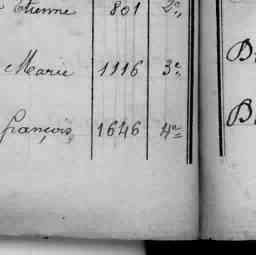 Etienne 801 2e
Marie 1116 3e
françois 1646 4e